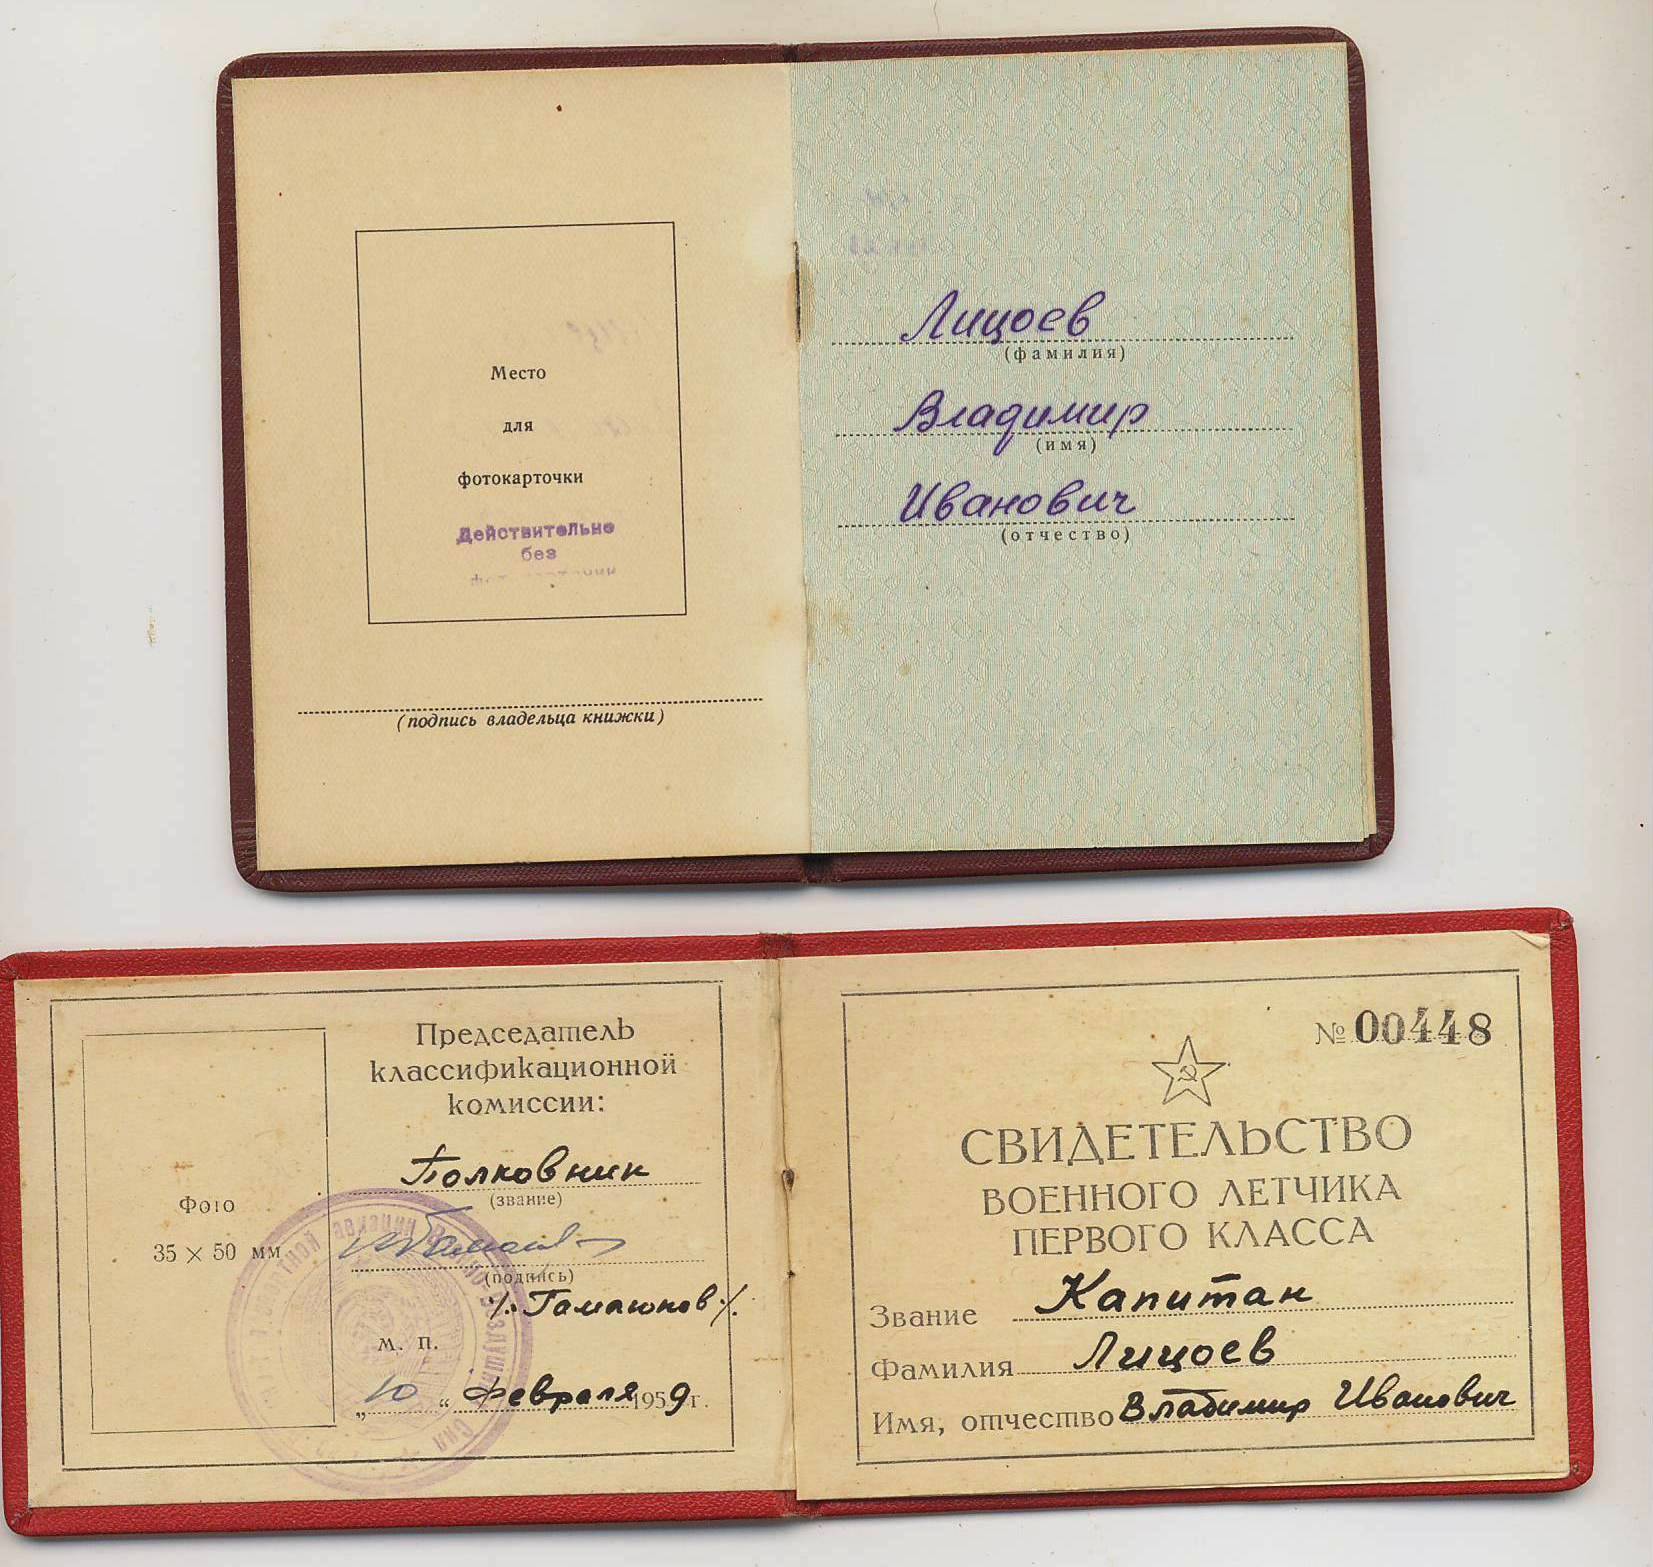 Место
для
фотокарточки
Действительно
без
(подпись владельца книжки)
Лицоев
(фамилия)
Владимир
(имя)
Иванович
(отчество)
Председатель
классификационной
комиссии:
Полковник
(звание)
(подпись)
/.Гамаюнов./.
Фото
35 × 50 мм
М. П.
„10“ февраля 1959 г.
№ 00448
СВИДЕТЕЛЬСТВО
ВОЕННОГО ЛЕТЧИКА
ПЕРВОГО КЛАССА
Звание Капитан
Фамилия Лицоев
Имя, отчество Владимир Иванович